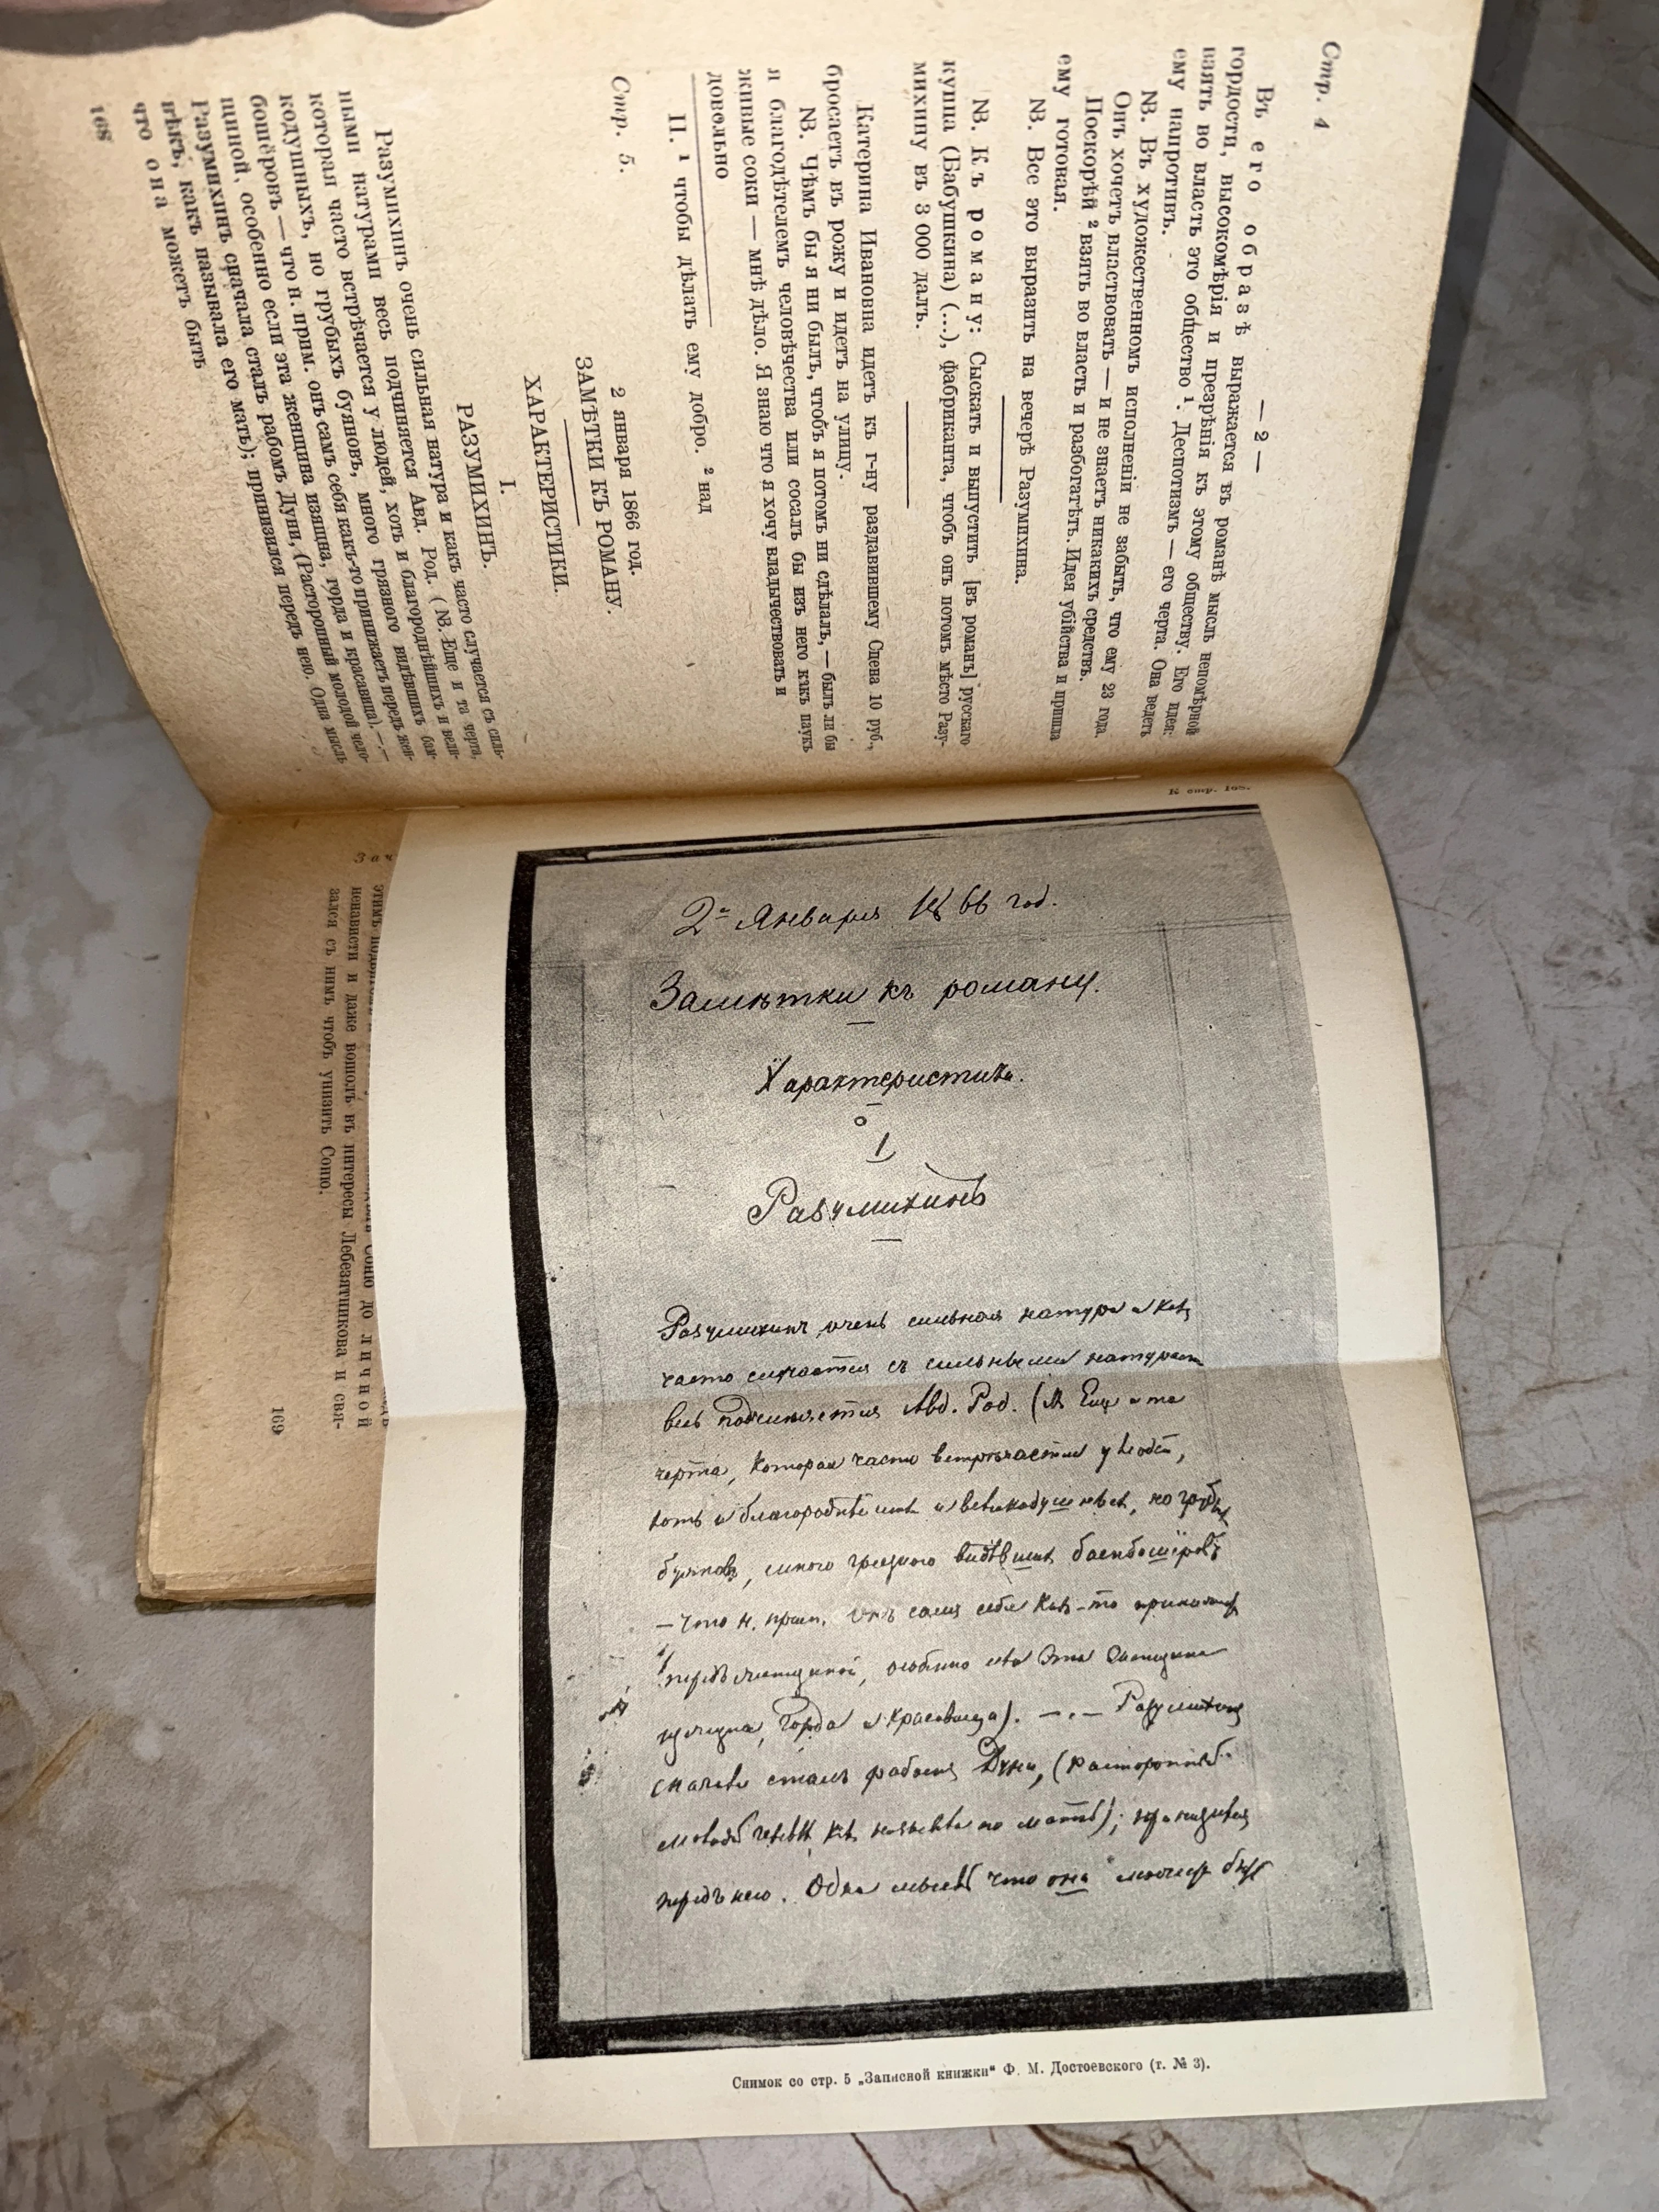 Стр. 4
— 2 —
Въ его образѣ выражается въ романѣ мысль непомѣрной
гордости, высокомѣрія и презрѣнія къ этому обществу. Его идея:
взять во власть это общество ¹. Деспотизмъ — его черта. Она ведетъ
ему напротивъ.
NB. Въ художественномъ исполненіи не забыть, что ему 23 года.
Онъ хочетъ властвовать — и не знаетъ никакихъ средствъ.
Поскорѣй ² взять во власть и разбогатѣть. Идея убійства и пришла
ему готовая.
NB. Все это выразить на вечерѣ Разумихина.
NB. Къ роману: Сыскать и выпустить [въ романъ] русскаго
купца (Бабушкина) (...), фабриканта, чтобъ онъ потомъ мѣсто Разу-
михину въ 3 000 далъ.
Катерина Ивановна идетъ къ г-ну раздавившему Сцена 10 руб.,
бросаетъ въ рожу и идетъ на улицу.
NB. Чѣмъ бы я ни былъ, чтобъ я потомъ ни сдѣлалъ, — былъ ли бы
я благодѣтелемъ человѣчества или сосалъ бы изъ него какъ паукъ
живые соки — мнѣ дѣло. Я знаю что я хочу владычествовать и
довольно
II. ¹ чтобы дѣлать ему добро. ² над
Стр. 5.
2 января 1866 год.
ЗАМѢТКИ КЪ РОМАНУ.
ХАРАКТЕРИСТИКИ.
I.
РАЗУМИХИНЪ.
Разумихинъ очень сильная натура и какъ часто случается съ силь-
ными натурами весь подчиняется Авд. Род. (NB. Еще и та черта,
которая часто встрѣчается у людей, хоть и благороднѣйшихъ и вели-
кодушныхъ, но грубыхъ буяновъ, много грязнаго видѣвшихъ бам-
бошёровъ — что н. прим. онъ самъ себя какъ-то принижаетъ передъ жен-
щиной, особенно если эта женщина изящна, горда и красавица). —.—
Разумихинъ сначала сталъ рабомъ Дуни, (Расторопный молодой чело-
вѣкъ, какъ называла его мать); принизился передъ нею. Одна мысль
что она можетъ быть
168
К стр. 168.
2го Января 1866 год.
Замѣтки къ роману.
Характеристика.
1
Разумихинъ
Разумихинъ очень сильная натура и какъ
часто случается съ сильными натурами
весь подчиняется Авд. Род. (NB Еще и та
черта, которая часто встрѣчается у людей,
хоть и благороднѣйшихъ и великодушныхъ, но грубыхъ
буяновъ, много грязного видѣвшихъ бамбошёровъ
— что н. прим. онъ самъ себя какъ-то принижаетъ
передъ женщиной, особенно если эта женщина
изящна, горда и красавица). —.— Разумихинъ
сначала сталъ рабомъ Дуни, (расторопный
молодой человѣкъ, какъ называла его мать); принизился
передъ нею. Одна мысль что она можетъ быть
Снимок со стр. 5 „Записной книжки“ Ф. М. Достоевского (т. № 3).
Соню до личной
ненависти и даже вошолъ въ интересы Лебезятникова и свя-
зался съ нимъ чтобъ унизить Соню.
169